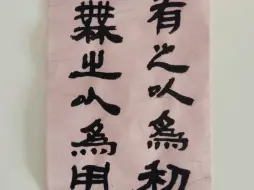 有之以為利
無之以為用